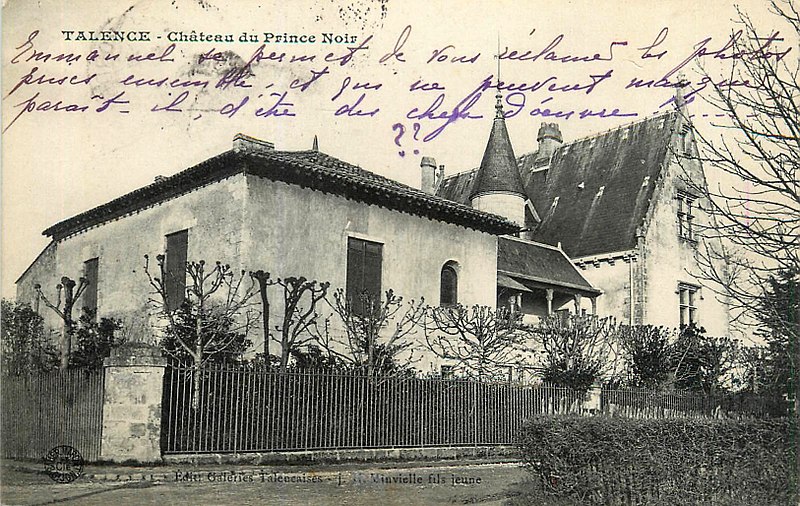 TALENCE - Château du Prince Noir
Emmanuel se permet de vous réclamer les photos
prises ensemble, et qui ne peuvent manquer
paraît-il, d'être des chefs d'œuvre !...
??
Edit. Galeries Talençaises - J. Minvielle fils jeune